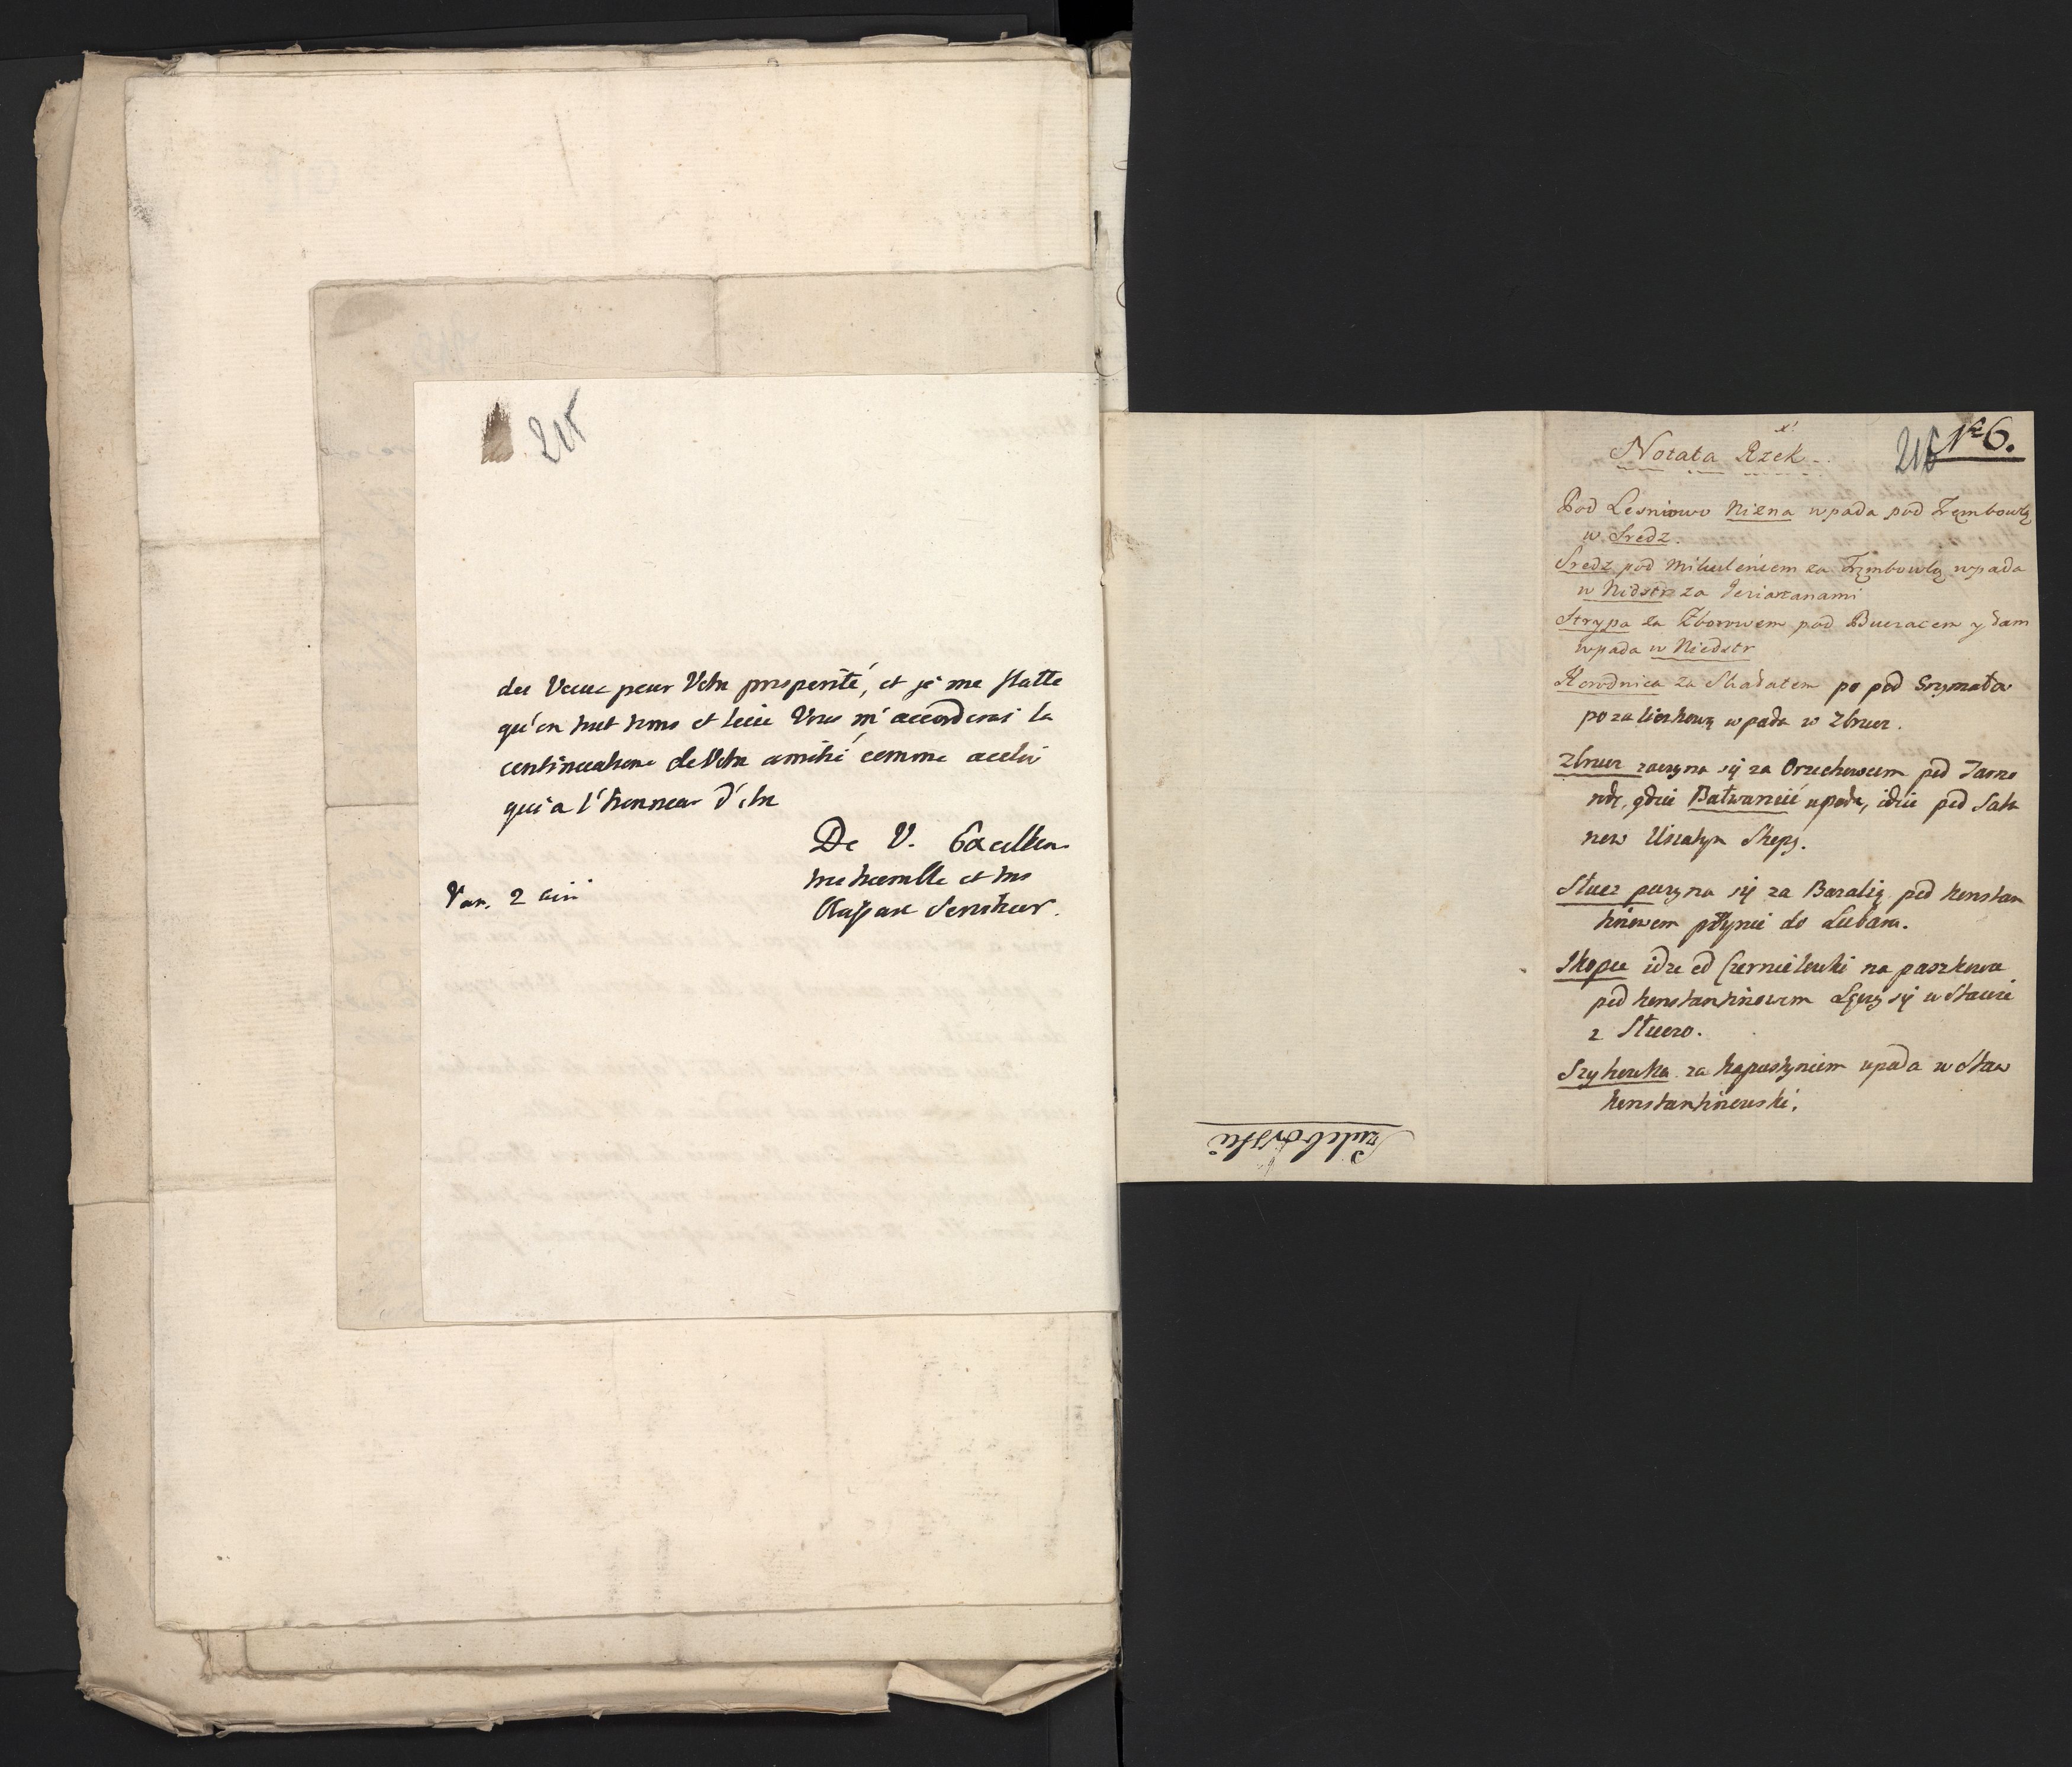 215
des Vœux pour Votre prosperité, et je me flatte
qu'en tout tems et lieu Vous m'accorderai la
continuation de Votre amitié comme a celui
qui a l'honneur d'etre
De V. Excellen
tres humble et tres
Var. 2 Serviteur.
216 Nr 6.
Notata Rzek
Pod Lesniowo Nizna wpada pod Trembowlą
w Sredz.
Sredz pod Mikulencem za Trembowlą wpada
w Nidstr za
Strypa za Zborowem pod Buczacem y dam
wpada w Niedstr
Horodnica za Skałatem po pod Grzymała
poza Liczkową wpada w Zbrucz.
Zbrucz zaczyna się za Orzechowcem pod Tarno
rudę, gdzie Bałwanici upada, idzie pod Sata
now Usiatyn Skepy.
Słucz poczyna się za Bazalią pod konstan
tinowem płynie do Lubara.
Ikopec idzie od Czernielewki na paszkowce
pod konstantinowem Łączy się w stawie
z Słuczo.
Szykowka za kapustyniem upada w staw
konstantinowski.
Szulborski